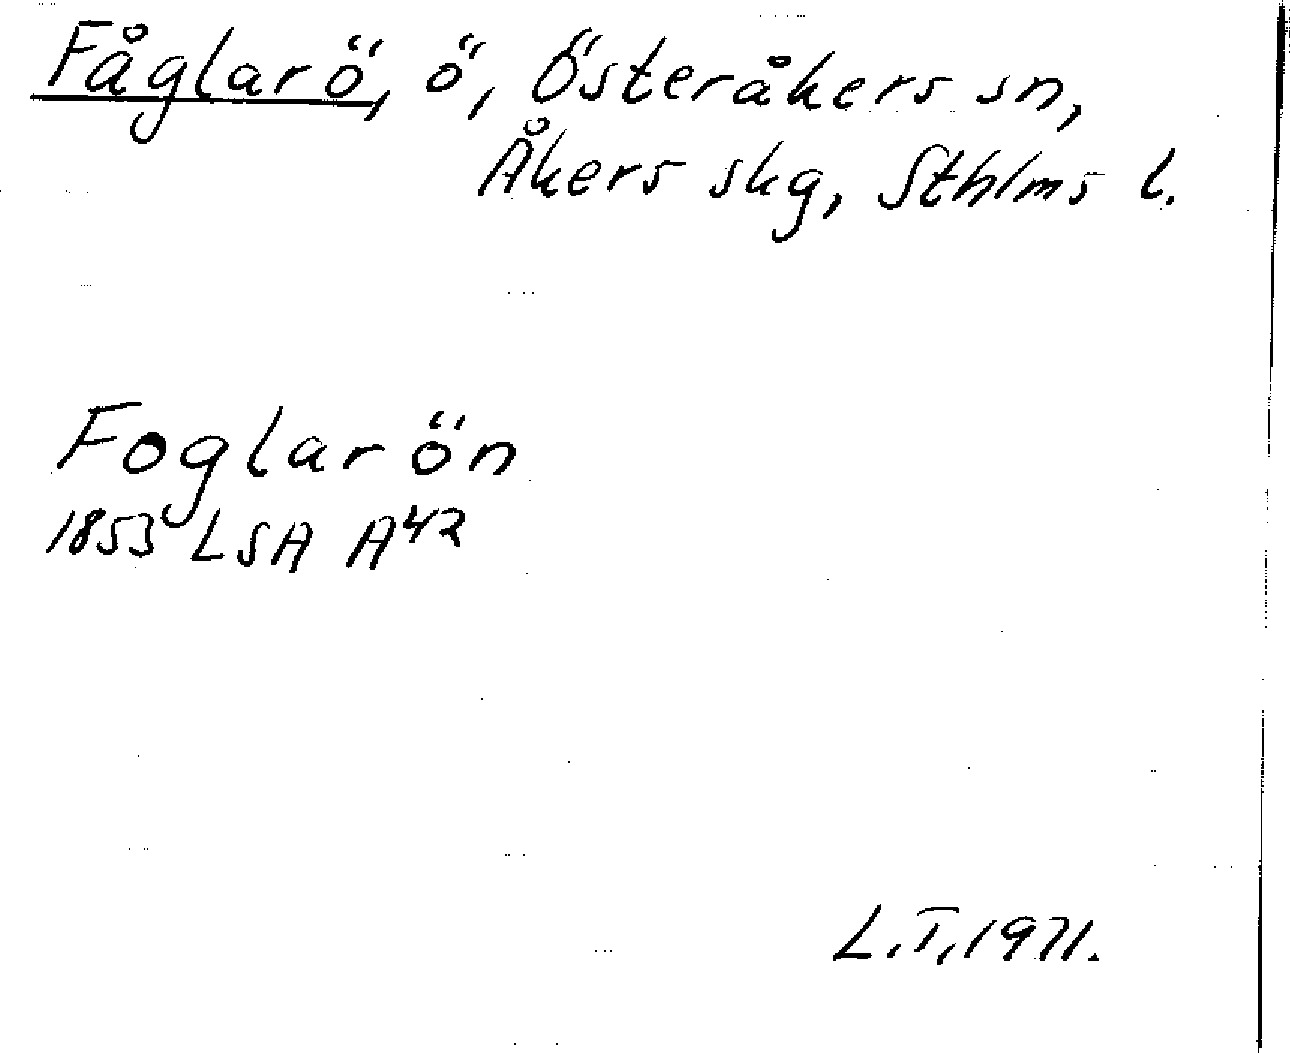 Fåglarö, ö, Österåkers sn,
Åkers skg, Sthlms l.
Foglarön
1853 LSA A42
L.T. 1971.